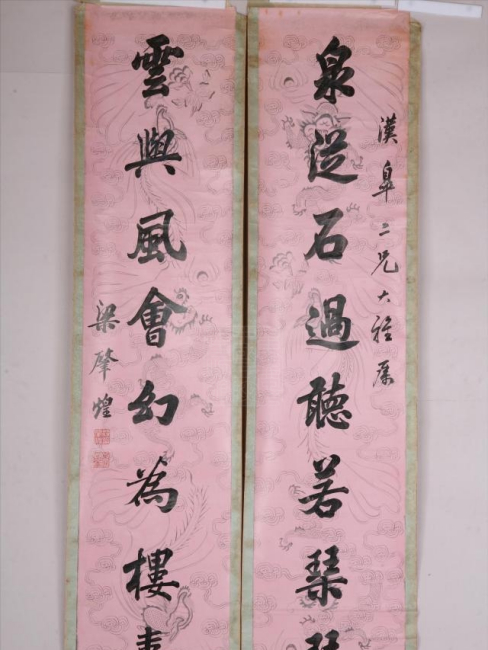 漢皋二兄大雅屬
泉從石過聽若琴
雲與風會幻為樓
梁肇煌